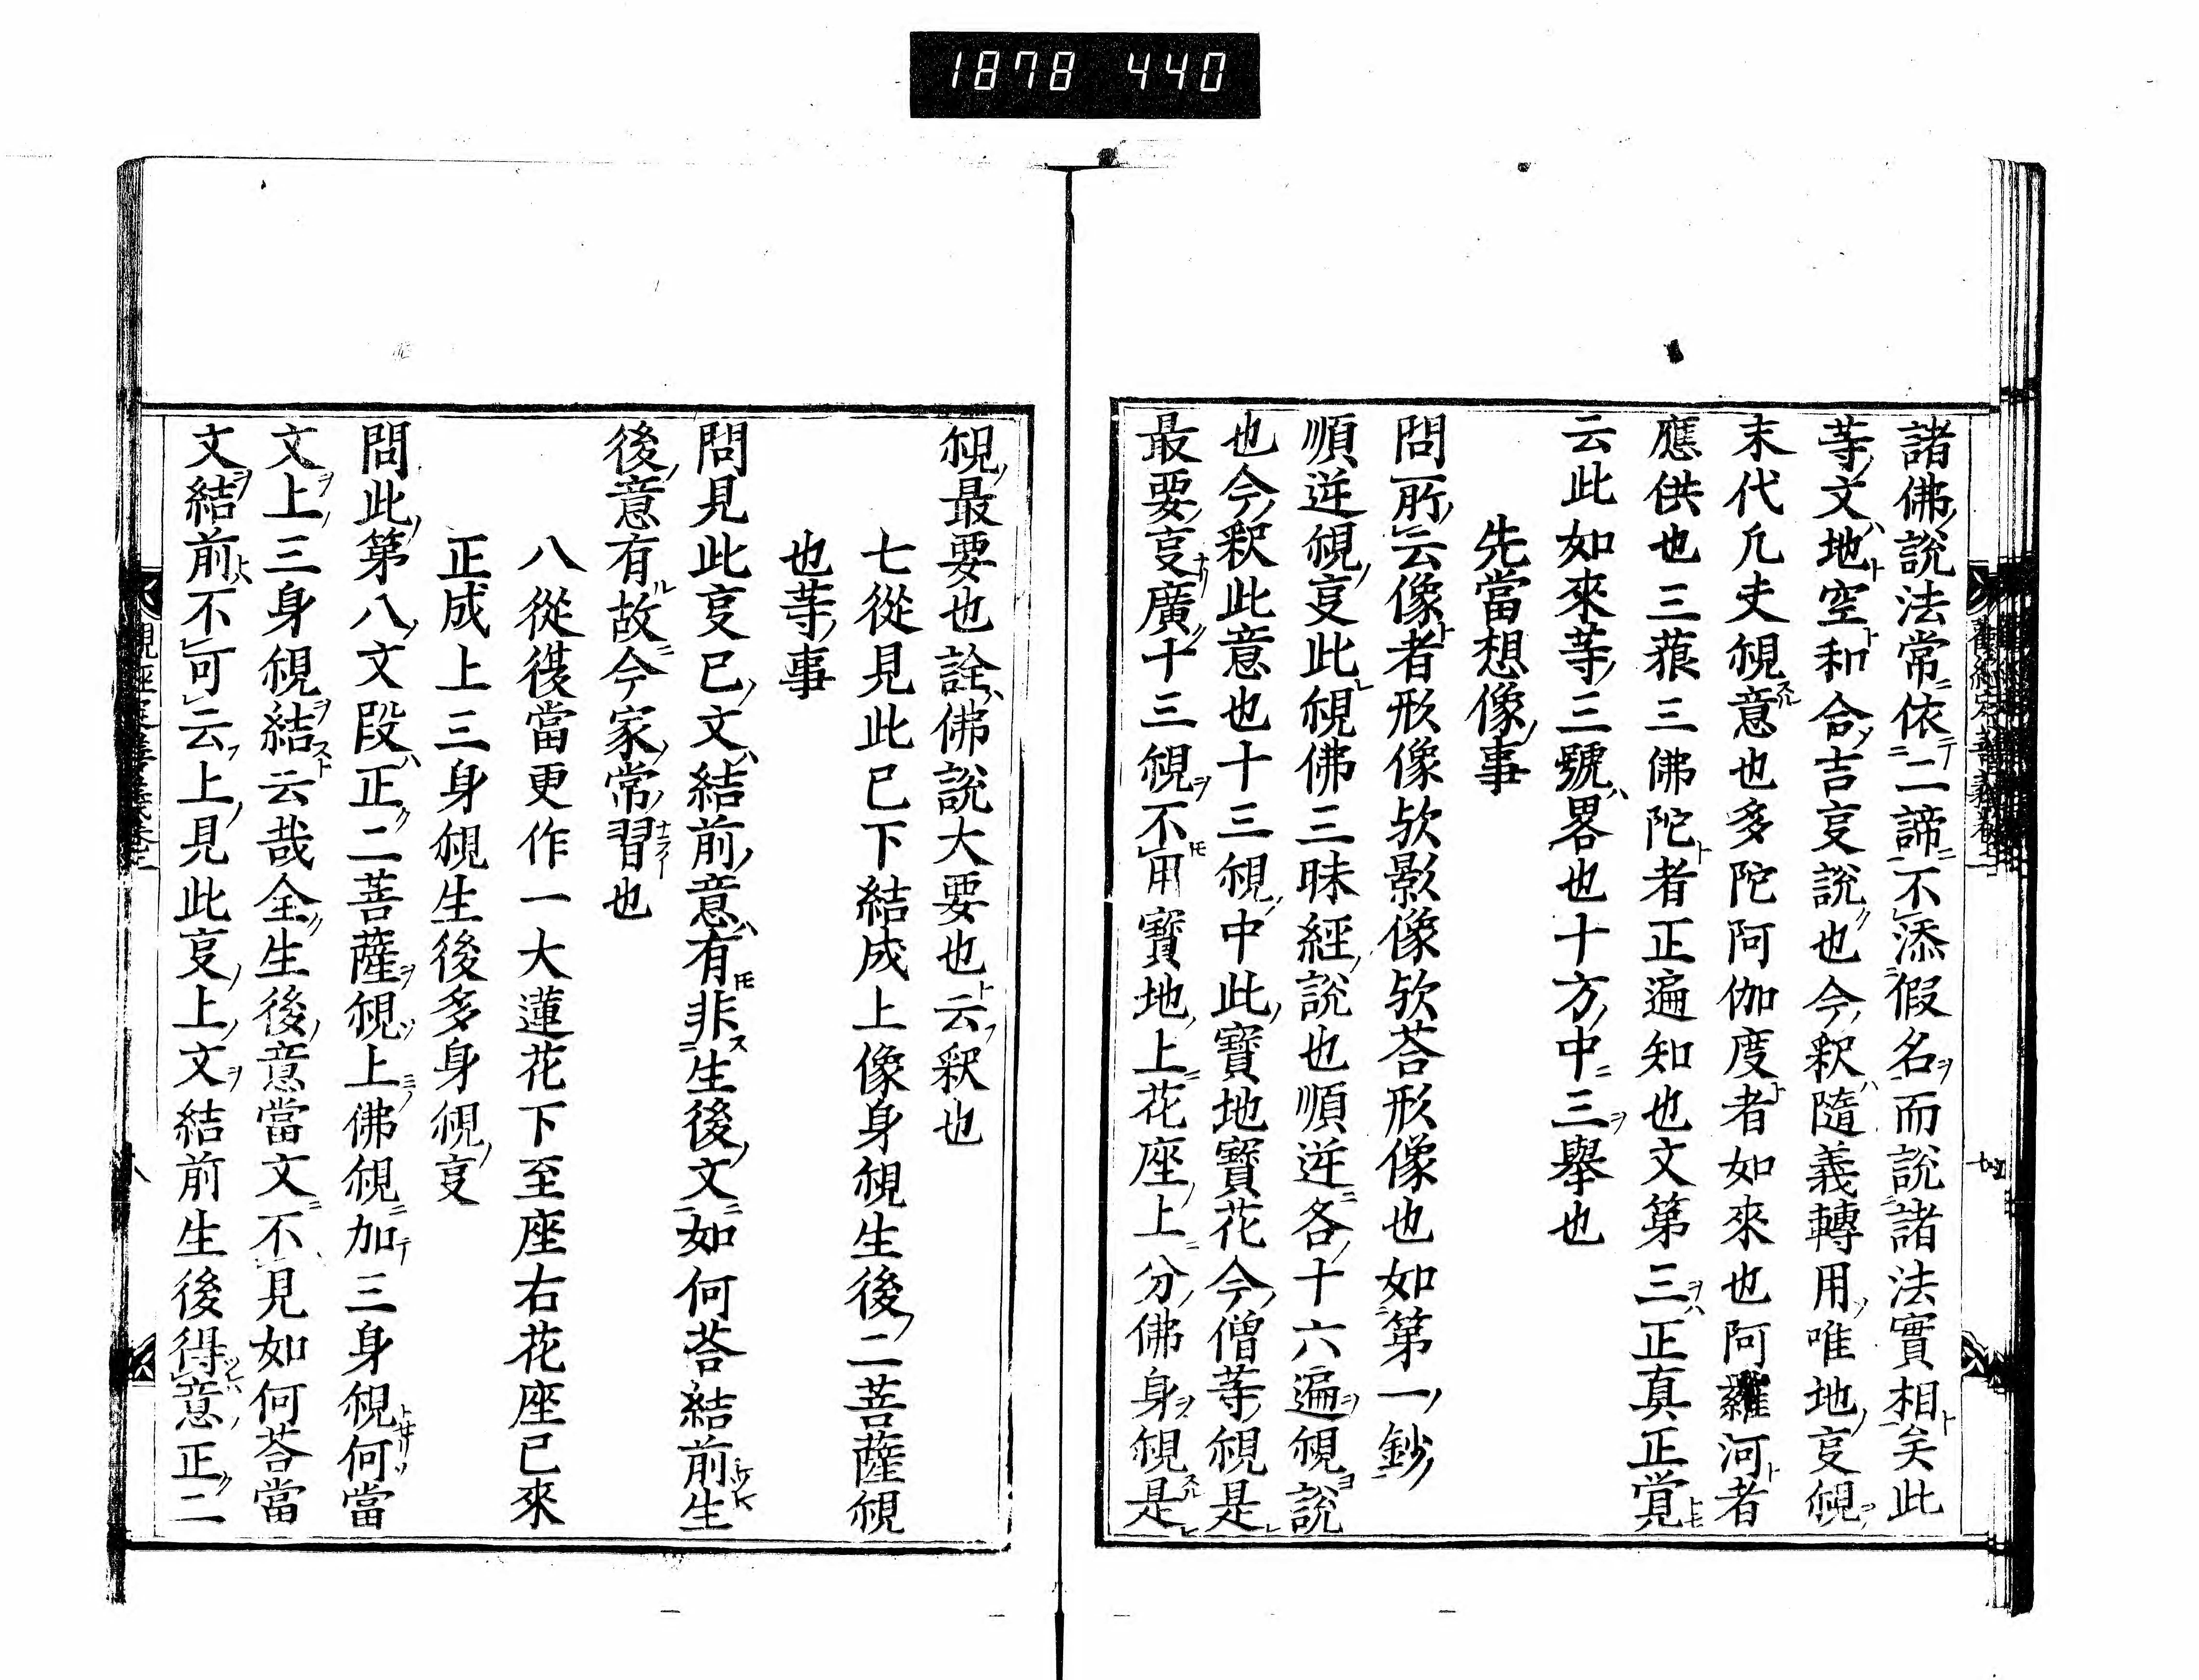 1878 440
諸佛説法常依二諦不添假名而説諸法實相矣此
等文地空和合吉叓説也今釈隨義轉用唯地叓覌
末代凢夫覌意也多陀阿伽度者如來也阿羅河者
應供也三藐三佛陀者正遍知也文第三正真正覚
云此如來等三號畧也十方中三舉也
先當想像事
問所云像者形像欤影像欤荅形像也如第一鈔
順逆覌叓此覌佛三昧經説也順逆各十六遍覌説
也今釈此意也十三覌中此寶地寶花今僧等覌是
最要叓廣十三覌不用寶地上花座上分佛身覌是
覌最要也詮佛説大要也云釈也
七從見此已下結成上像身覌生後二菩薩覌
也等事
問見此叓已文結前意有非生後文如何荅結前生
後意有故今家常習也
八從復當更作一大蓮花下至座右花座已來
正成上三身覌生後多身覌叓
問此第八文段正二菩薩覌上佛覌加三身覌何當
文上三身覌結云哉全生後意當文不見如何荅當
文結前不可云上見此叓上文結前生後得意正二